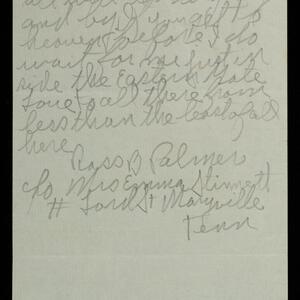 and by
heaven before I do
wait for me just in
side the Eastern gate
Love to all there from
less than the least of all
here
Ross B Palmer
c/o Mrs Emma Stinnett
# Ford St Maryville
Tenn